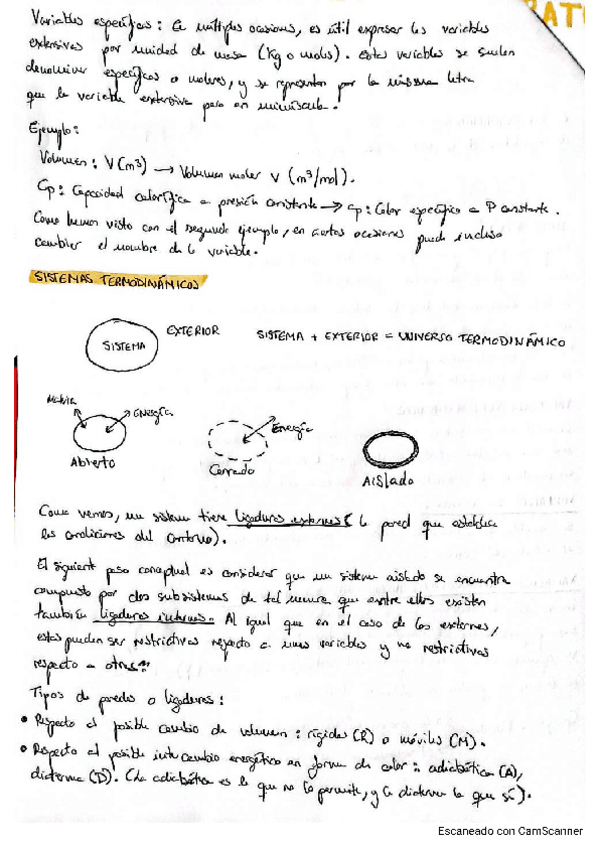 RAT
Variables específicas: En múltiples ocasiones, es útil expresar las variables
extensivas por unidad de masa (Kg o moles). Estas variables se suelen
denominar específicas o molares, y se representan por la misma letra
que la variable extensiva pero en minúscula.
Ejemplo:
Volumen: V(m³) → Volumen molar v (m³/mol).
Cp: Capacidad calorífica a presión constante → cp: Calor específico a P constante.
Como hemos visto con el segundo ejemplo, en ciertas ocasiones puede incluso
cambiar el nombre de la variable.
SISTEMAS TERMODINÁMICOS
SISTEMA
EXTERIOR
SISTEMA + EXTERIOR = UNIVERSO TERMODINÁMICO
Materia
Energía
Energía
Abierto
Cerrado
Aislado
Como vemos, un sistema tiene ligaduras externas (la pared que establece
las condiciones del contorno).
El siguiente paso conceptual es considerar que un sistema aislado se encuentra
compuesto por dos subsistemas de tal manera que entre ellos existen
también ligaduras internas. Al igual que en el caso de las externas,
estas pueden ser restrictivas respecto a unas variables y no restrictivas
respecto a otras.
Tipos de paredes o ligaduras:
• Respecto al posible cambio de volumen: rígidas (R) o móviles (M).
• Respecto al posible intercambio energético en forma de calor: adiabática (A),
diaterma (D). (La adiabática es la que no lo permite, y la diaterma la que sí).
Escaneado con CamScanner